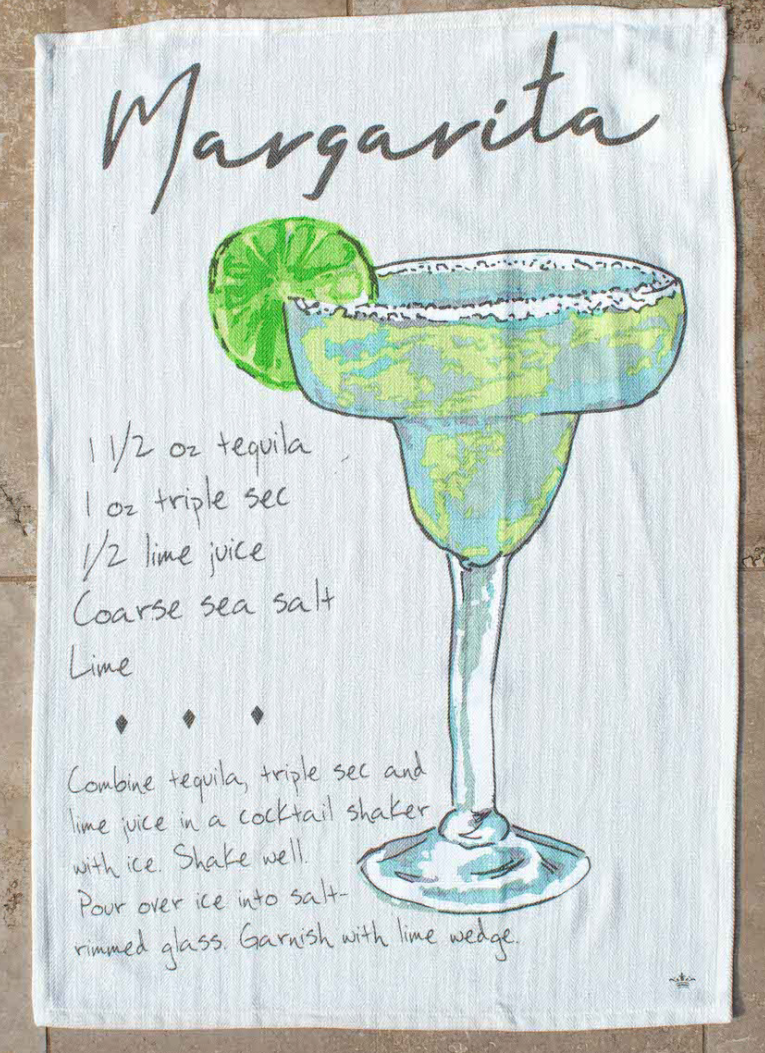 Margarita
1 1/2 oz tequila
1 oz triple sec
1/2 lime juice
Coarse sea salt
Lime
Combine tequila, triple sec and
lime juice in a cocktail shaker
with ice. Shake well.
Pour over ice into salt-
rimmed glass. Garnish with lime wedge.